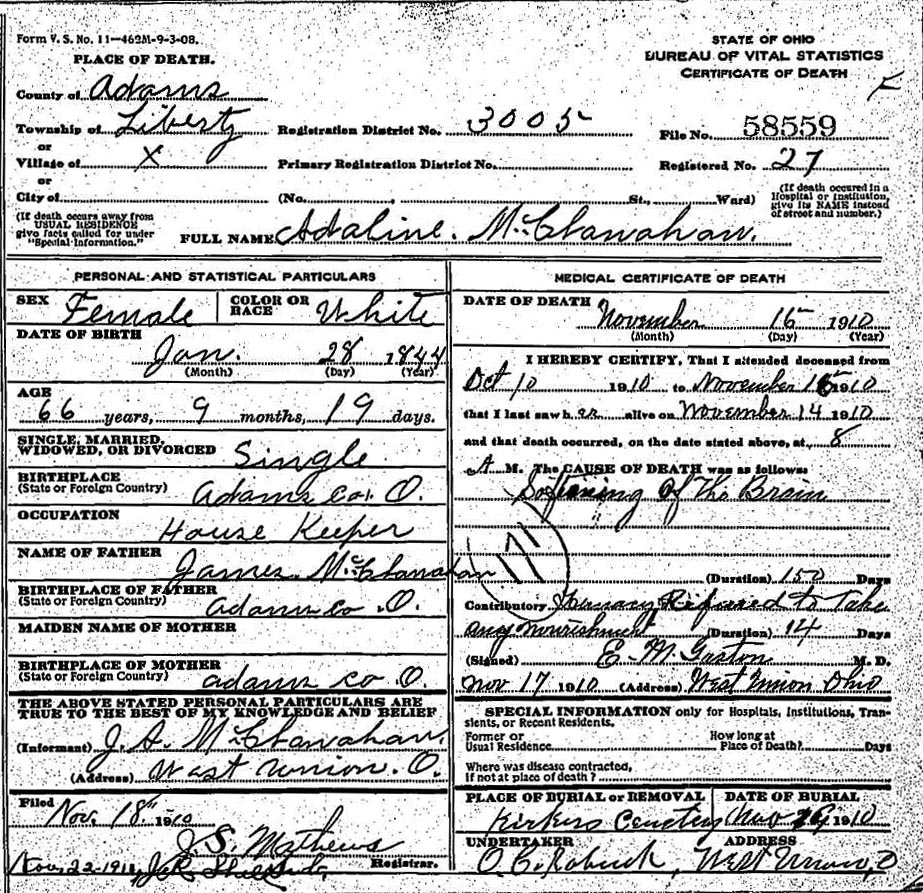 Form V. S. No. 11—462M-9-3-08.
PLACE OF DEATH.
STATE OF OHIO
BUREAU OF VITAL STATISTICS
CERTIFICATE OF DEATH
County of Adams
Township of Liberty Registration District No. 3005 File No. 58559
or
Village of X Primary Registration District No. Registered No. 27
or
City of (No. St., Ward) (If death occured in a Hospital or Institution, give its NAME instead of street and number.)
(If death occurs away from USUAL RESIDENCE give facts called for under "Special Information.")
FULL NAME Adaline. McClanahan.
PERSONAL AND STATISTICAL PARTICULARS
SEX Female COLOR OR RACE White
DATE OF BIRTH
Jan. 28 1844
(Month) (Day) (Year)
AGE
66 years, 9 months, 19 days.
SINGLE, MARRIED,
WIDOWED, OR DIVORCED Single
BIRTHPLACE
(State or Foreign Country) Adams co. O.
OCCUPATION
House Keeper
NAME OF FATHER
James McClanahan
BIRTHPLACE OF FATHER
(State or Foreign Country) Adams co. O.
MAIDEN NAME OF MOTHER
BIRTHPLACE OF MOTHER
(State or Foreign Country) adams co O.
THE ABOVE STATED PERSONAL PARTICULARS ARE
TRUE TO THE BEST OF MY KNOWLEDGE AND BELIEF
(Informant) J. A. McClanahan
(Address) West Union. O.
Filed
Nov. 18th 1910
J. S. Mathews
Registrar.
Nov. 22-1910
MEDICAL CERTIFICATE OF DEATH
DATE OF DEATH
November 16 1910
(Month) (Day) (Year)
I HEREBY CERTIFY, That I attended deceased from
Oct 10 1910 to November 1910
that I last saw her alive on November 14 1910
and that death occurred, on the date stated above, at 8
A M. The CAUSE OF DEATH was as follows:
Softening of the Brain
171
(Duration) 150 Days
Contributory Refused to Take
any nourishment (Duration) 14 Days
(Signed) E. M. Gaston M. D.
Nov 17 1910 (Address) West Union Ohio
SPECIAL INFORMATION only for Hospitals, Institutions, Transients, or Recent Residents.
Former or
Usual Residence
How long at
Place of Death? Days
Where was disease contracted,
If not at place of death?
PLACE OF BURIAL or REMOVAL DATE OF BURIAL
Kirkers Cemetery Nov 1910
UNDERTAKER ADDRESS
West Union, O